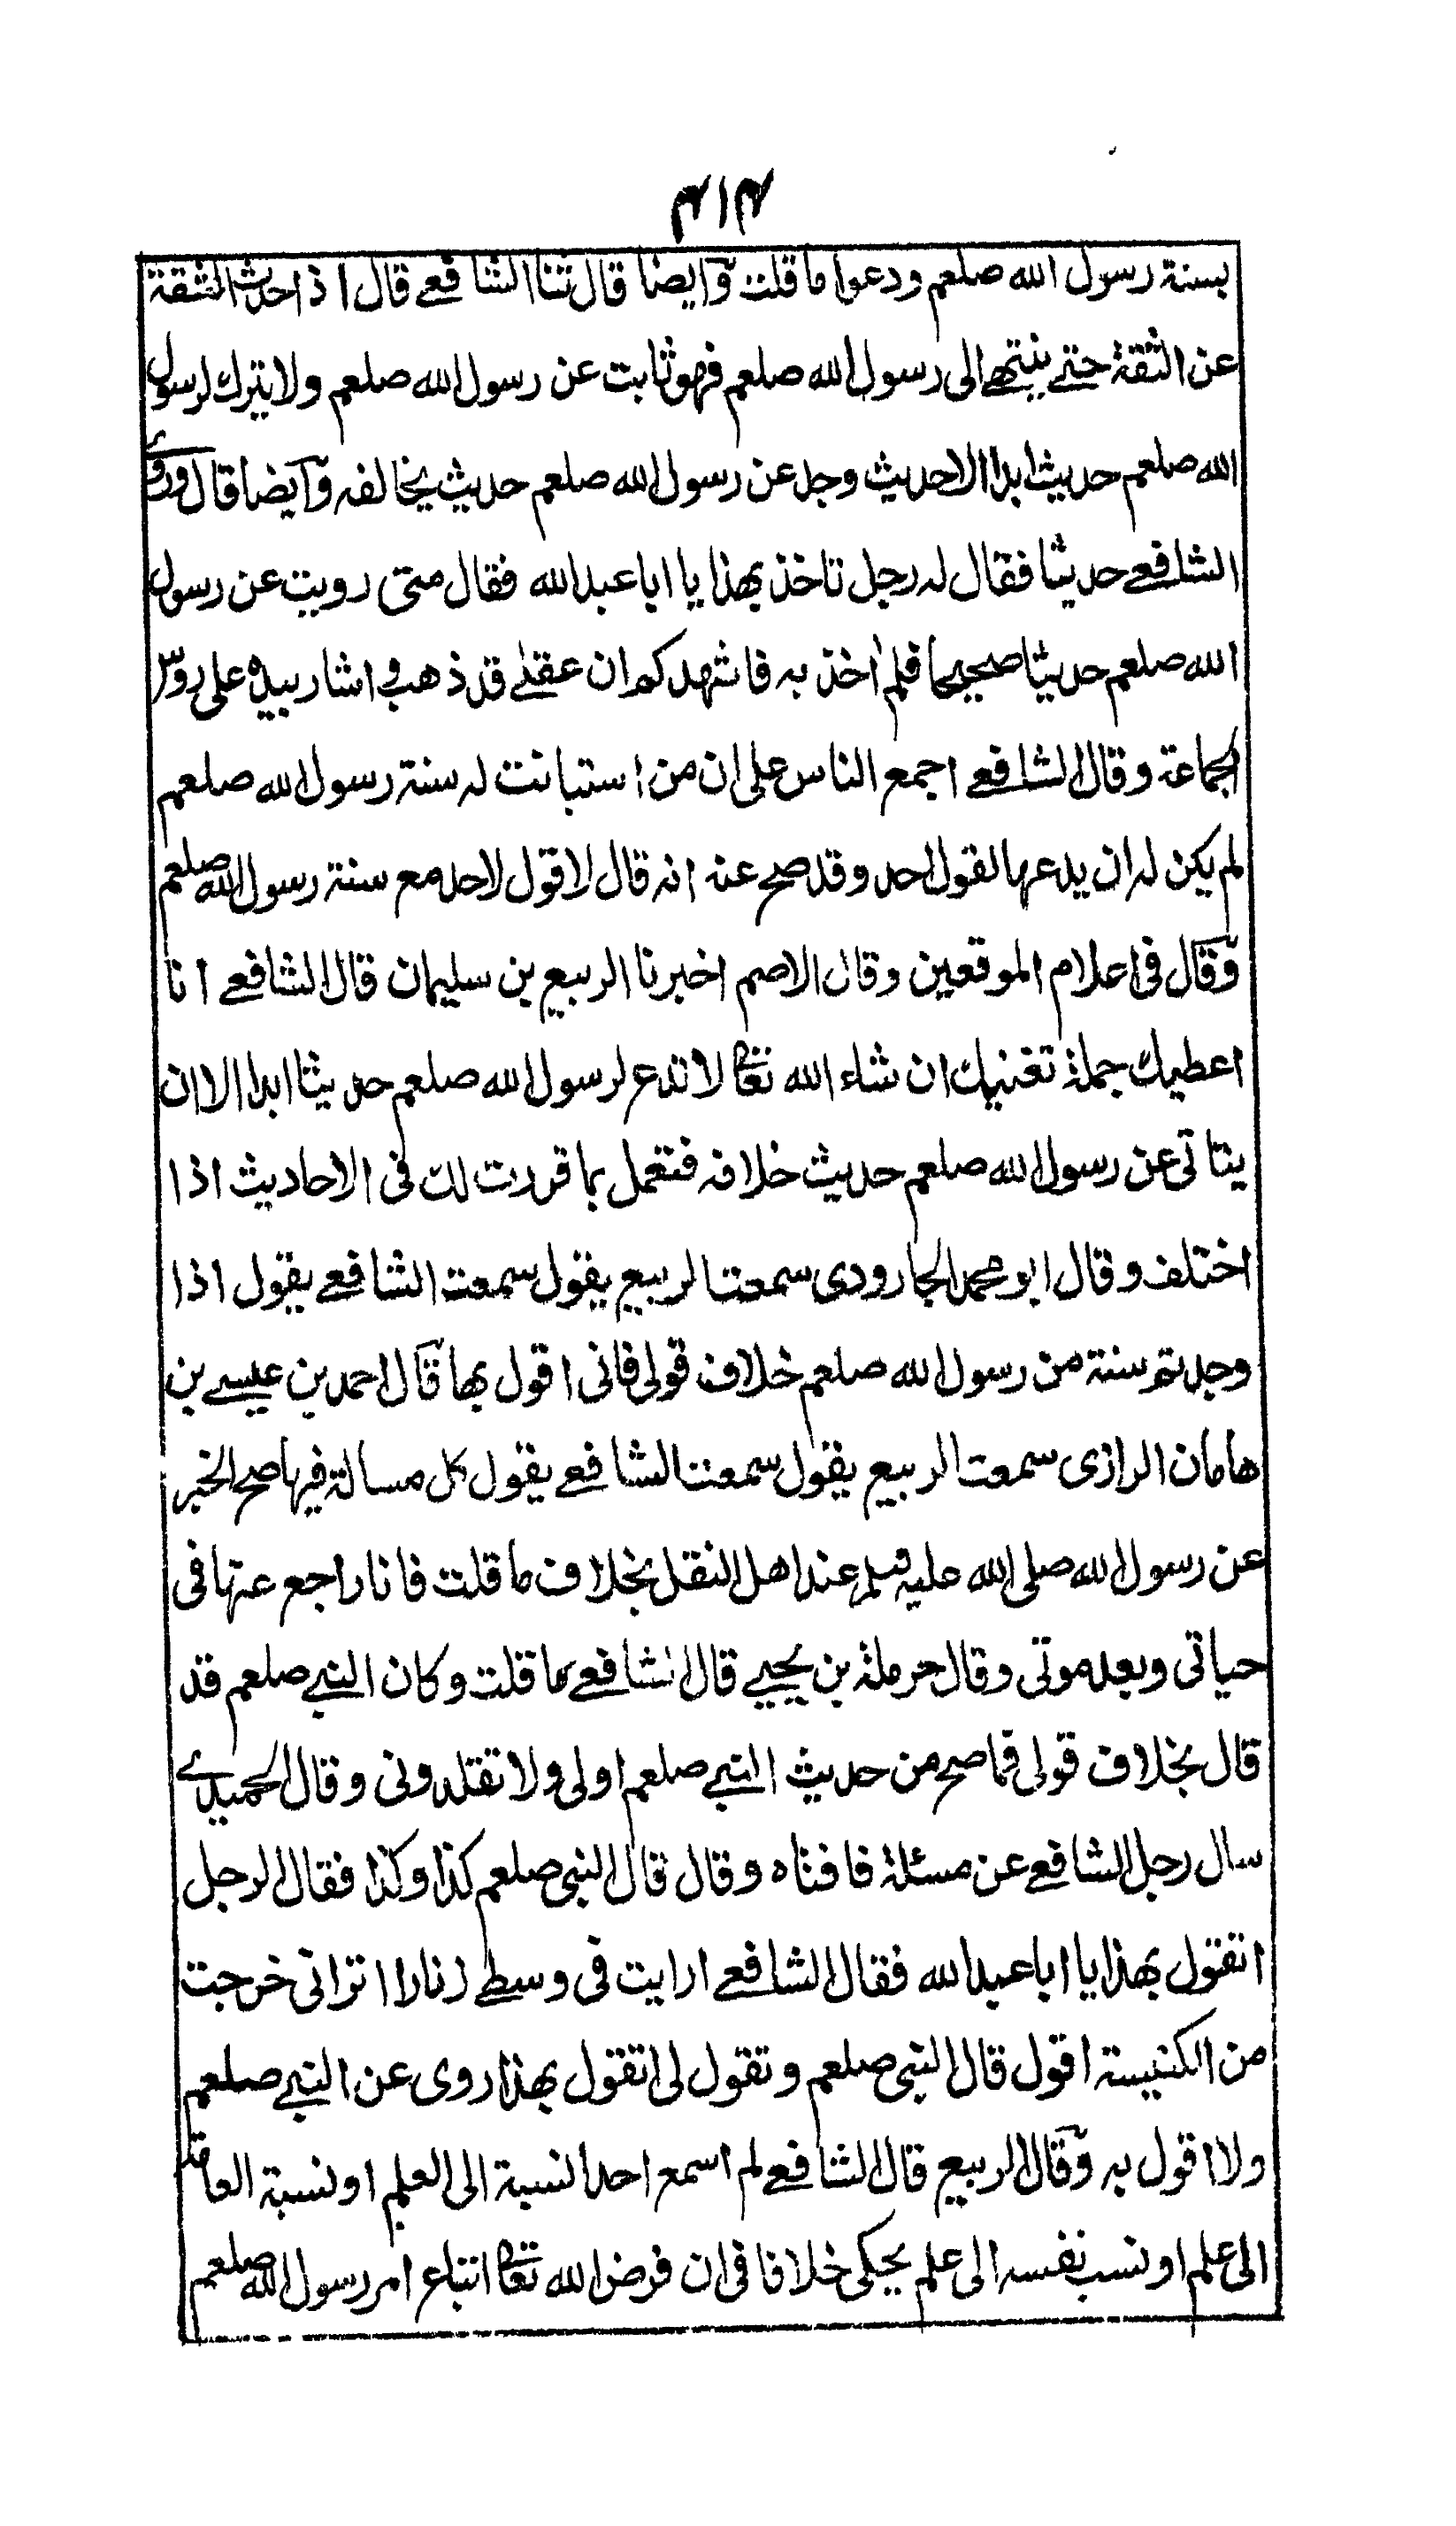 ۴۱۴
بسنة رسول الله صلعم ودعوا ما قلت وايضا قال ثنا الشافعے قال اذا حدث الثقة
عن الثقة حتے ينتهے الى رسول الله صلعم فهو ثابت عن رسول الله صلعم ولا يترك لرسول
الله صلعم حديث ابدا الا حديث وجد عن رسول الله صلعم حديث يخالفه وايضا قال وروے
الشافعے حديثا فقال له رجل تاخذ بهذا يا ابا عبد الله فقال متى رويت عن رسول
الله صلعم حديثا صحيحا فلم اخذ به فاشهدكم ان عقلے قد ذهب و اشار بيده على روس
الجماعة وقال الشافعے اجمع الناس على ان من استبانت له سنة رسول الله صلعم
لم يكن له ان يدعها لقول احد وقد صح عنه انه قال لا قول لاحد مع سنة رسول الله صلعم
وقال فى اعلام الموقعين وقال الاصم اخبرنا الربيع بن سليمان قال الشافعے انا
اعطيك جملة تغنيك ان شاء الله تعالى لا تدع لرسول الله صلعم حديثا ابدا الا ان
يتاتى عن رسول الله صلعم حديث خلافه فتعمل بما قررت لك فى الاحاديث اذا
اختلف وقال ابو محمد الجارودى سمعت الربيع يقول سمعت الشافعے يقول اذا
وجدتم سنة من رسول الله صلعم خلاف قولى فانى اقول بها قال احمد بن عيسے بن
هامان الرازى سمعت الربيع يقول سمعت الشافعے يقول كل مسالة فيها صح الخبر
عن رسول الله صلى الله عليه وسلم عند اهل النقل بخلاف ما قلت فانا راجع عنها فى
حياتى وبعد موتى وقال حرملة بن يحيے قال الشافعے كما قلت وكان النبے صلعم قد
قال بخلاف قولى فما صح من حديث النبے صلعم اولى ولا تقلدونى وقال الحميدے
سال رجل الشافعے عن مسئلة فافتاه وقال قال النبى صلعم كذا وكذا فقال الرجل
اتقول بهذا يا ابا عبد الله فقال الشافعے ارايت فى وسطے زنارا اترانى خرجت
من الكنيسة اقول قال النبى صلعم وتقول لى اتقول بهذا روى عن النبے صلعم
ولا اقول به وقال الربيع قال الشافعے لم اسمع احدا نسبة الى العلم او نسبة العامة
الى علم او نسب نفسه الى علم يحكى خلافا فى ان فرض الله تعالى اتباع امر رسول الله صلعم